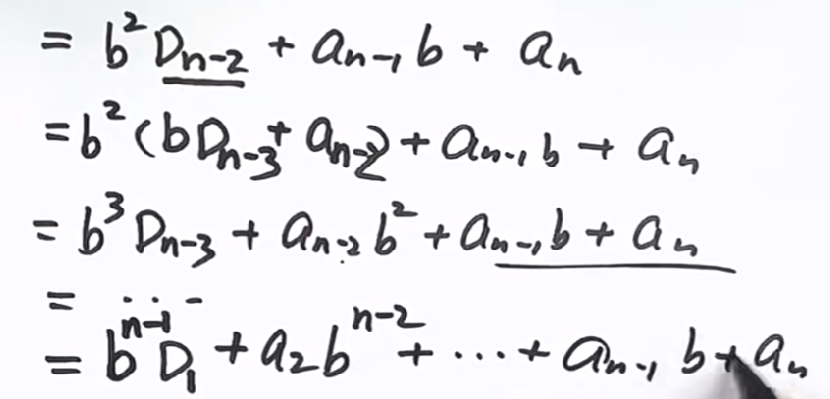 = b²Dₙ₋₂ + aₙ₋₁b + aₙ
= b²(bDₙ₋₃ + aₙ₋₂) + aₙ₋₁b + aₙ
= b³Dₙ₋₃ + aₙ₋₂b² + aₙ₋₁b + aₙ
= ...
= bⁿ⁻¹D₁ + a₂bⁿ⁻² + ... + aₙ₋₁b + aₙ